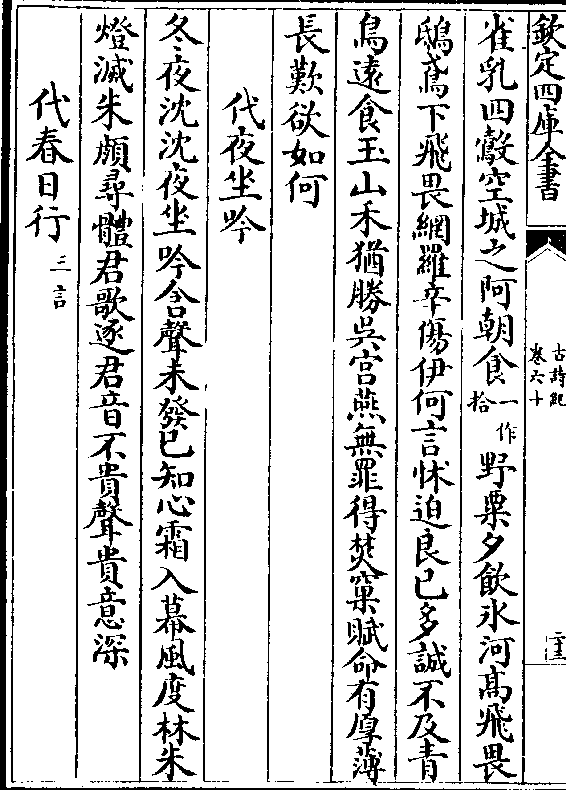 欽定四庫全書
古詩紀
卷六十
雀乳四鷇空城之阿朝食一作拾野粟夕飲氷河髙飛畏
鴟鳶下飛畏網羅辛傷伊何言怵迫良已多誠不及青
鳥遠食玉山禾猶勝吳宫燕無罪得焚窠賦命有厚薄
長歎欲如何
代夜坐吟
冬夜沈沈夜坐吟含聲未發已知心霜入幕風度林朱
燈滅朱顔尋體君歌逐君音不貴聲貴意深
代春日行三言